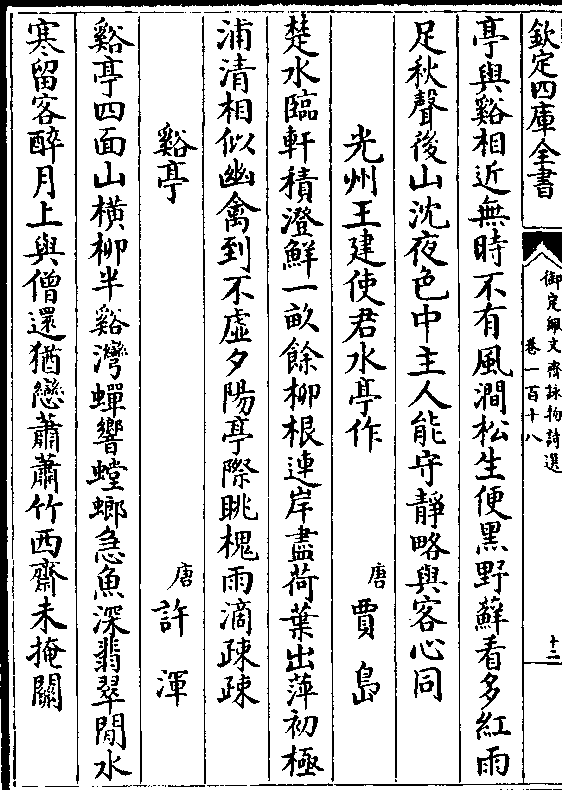 欽定四庫全書
御定佩文齋詠物詩選
卷一百十八
十二
亭與谿相近無時不有風澗松生便黑野蘚看多紅雨
足秋聲後山沈夜色中主人能守靜略與客心同
光州王建使君水亭作
唐
賈島
楚水臨軒積澄鮮一畝餘柳根連岸盡荷葉出萍初極
浦清相似幽禽到不虛夕陽亭際眺槐雨滴疎疎
谿亭
唐
許渾
谿亭四面山橫柳半谿灣蟬響螳螂急魚深翡翠閒水
寒留客醉月上與僧還猶戀蕭蕭竹西齋未掩關